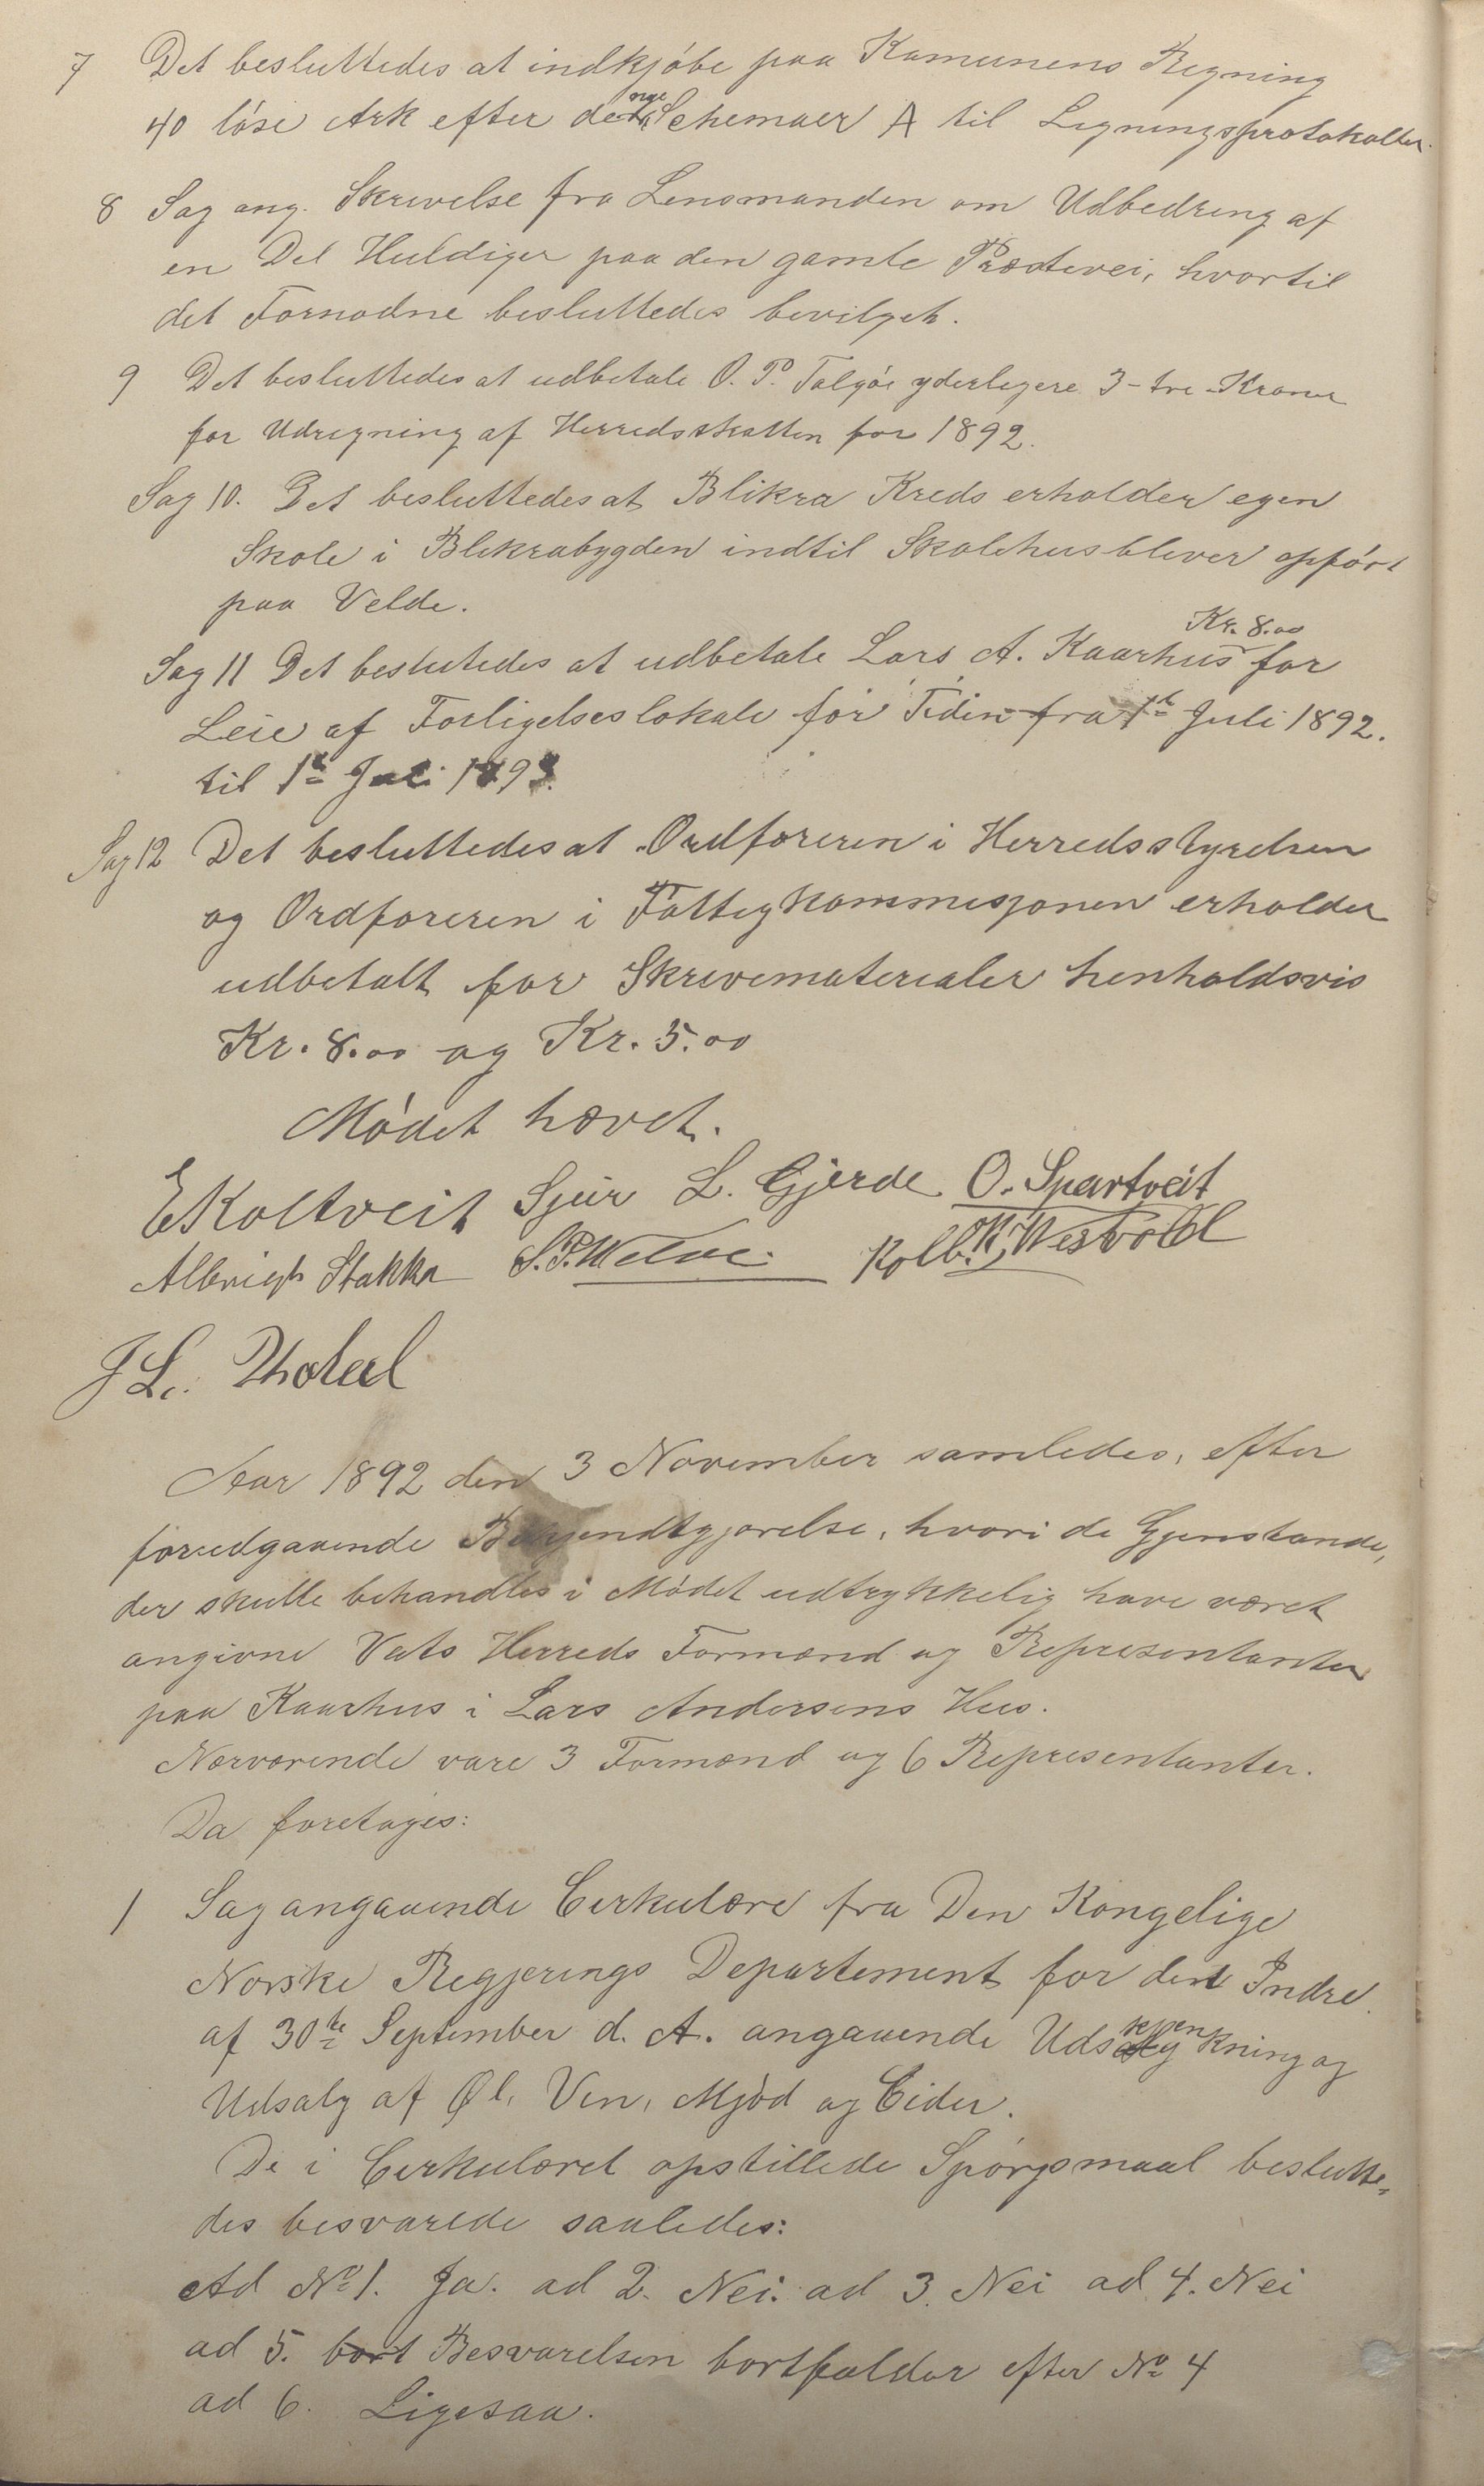 7 Det besluttedes at indkjøbe paa Kamunens Regning
40 løse Ark efter det nye Schemaer A til Ligningsprotokollen
8 Sag ang. Skrivelse fra Lensmanden om Udbedring af
en Del Huldiger paa den gamle Præstevei, hvortil
det Fornødne besluttedes bevilget.
9 Det besluttedes at udbetale O. P. Talgøe yderligere 3 - tre - Kroner
for Udregning af Herredsskatten for 1892.
Sag 10. Det besluttedes at Blikra Kreds erholder egen
Skole i Blikrabygden indtil Skolehus bliver opført
paa Velde.
Sag 11 Det beslutedes at udbetale Lars A. Kaarhus Kr. 8.00 for
Leie af Forligelseslokale før Tiden fra 1ste Juli 1892.
til 1ste Juli 1893.
Sag 12 Det besluttedes at Ordføreren i Herredsstyrelsen
og Ordføreren i Fattigkommisjonen erholder
udbetalt for Skrivematerialer henholdsvis
Kr. 8.00 og Kr. 5.00
Mødet hævet.
E Koltveit Sjur L. Gjerde O. Svartveit
Albrigt Stakka S. P. Welde Kolb. K. Vestvold
J L.
Aar 1892 den 3 November samledes, efter
foredgaaende Bekjendtgjørelse, hvori de Gjenstande,
der skulle behandles i Mødet udtrykkelig have været
angivne Vats Herreds Formænd og Representanter
paa Kaarhus i Lars Andersens Hus.
Nærværende vare 3 Formænd og 6 Representanter.
Da foretages:
1 Sag angaaende Cirkulære fra Den Kongelige
Norske Regjerings Departement for det Indre
af 30te September d. A. angaaende Udskjenkning og
Udsalg af Øl, Vin, Mjød og Cider.
De i Cirkulæret opstillede Spørgsmaal beslutte-
des besvarede saaledes:
Ad No 1. Ja. ad 2. Nei. ad 3. Nei ad 4. Nei
ad 5. bort Besvarelsen bortfalder efter No 4
ad 6. Ligesaa.